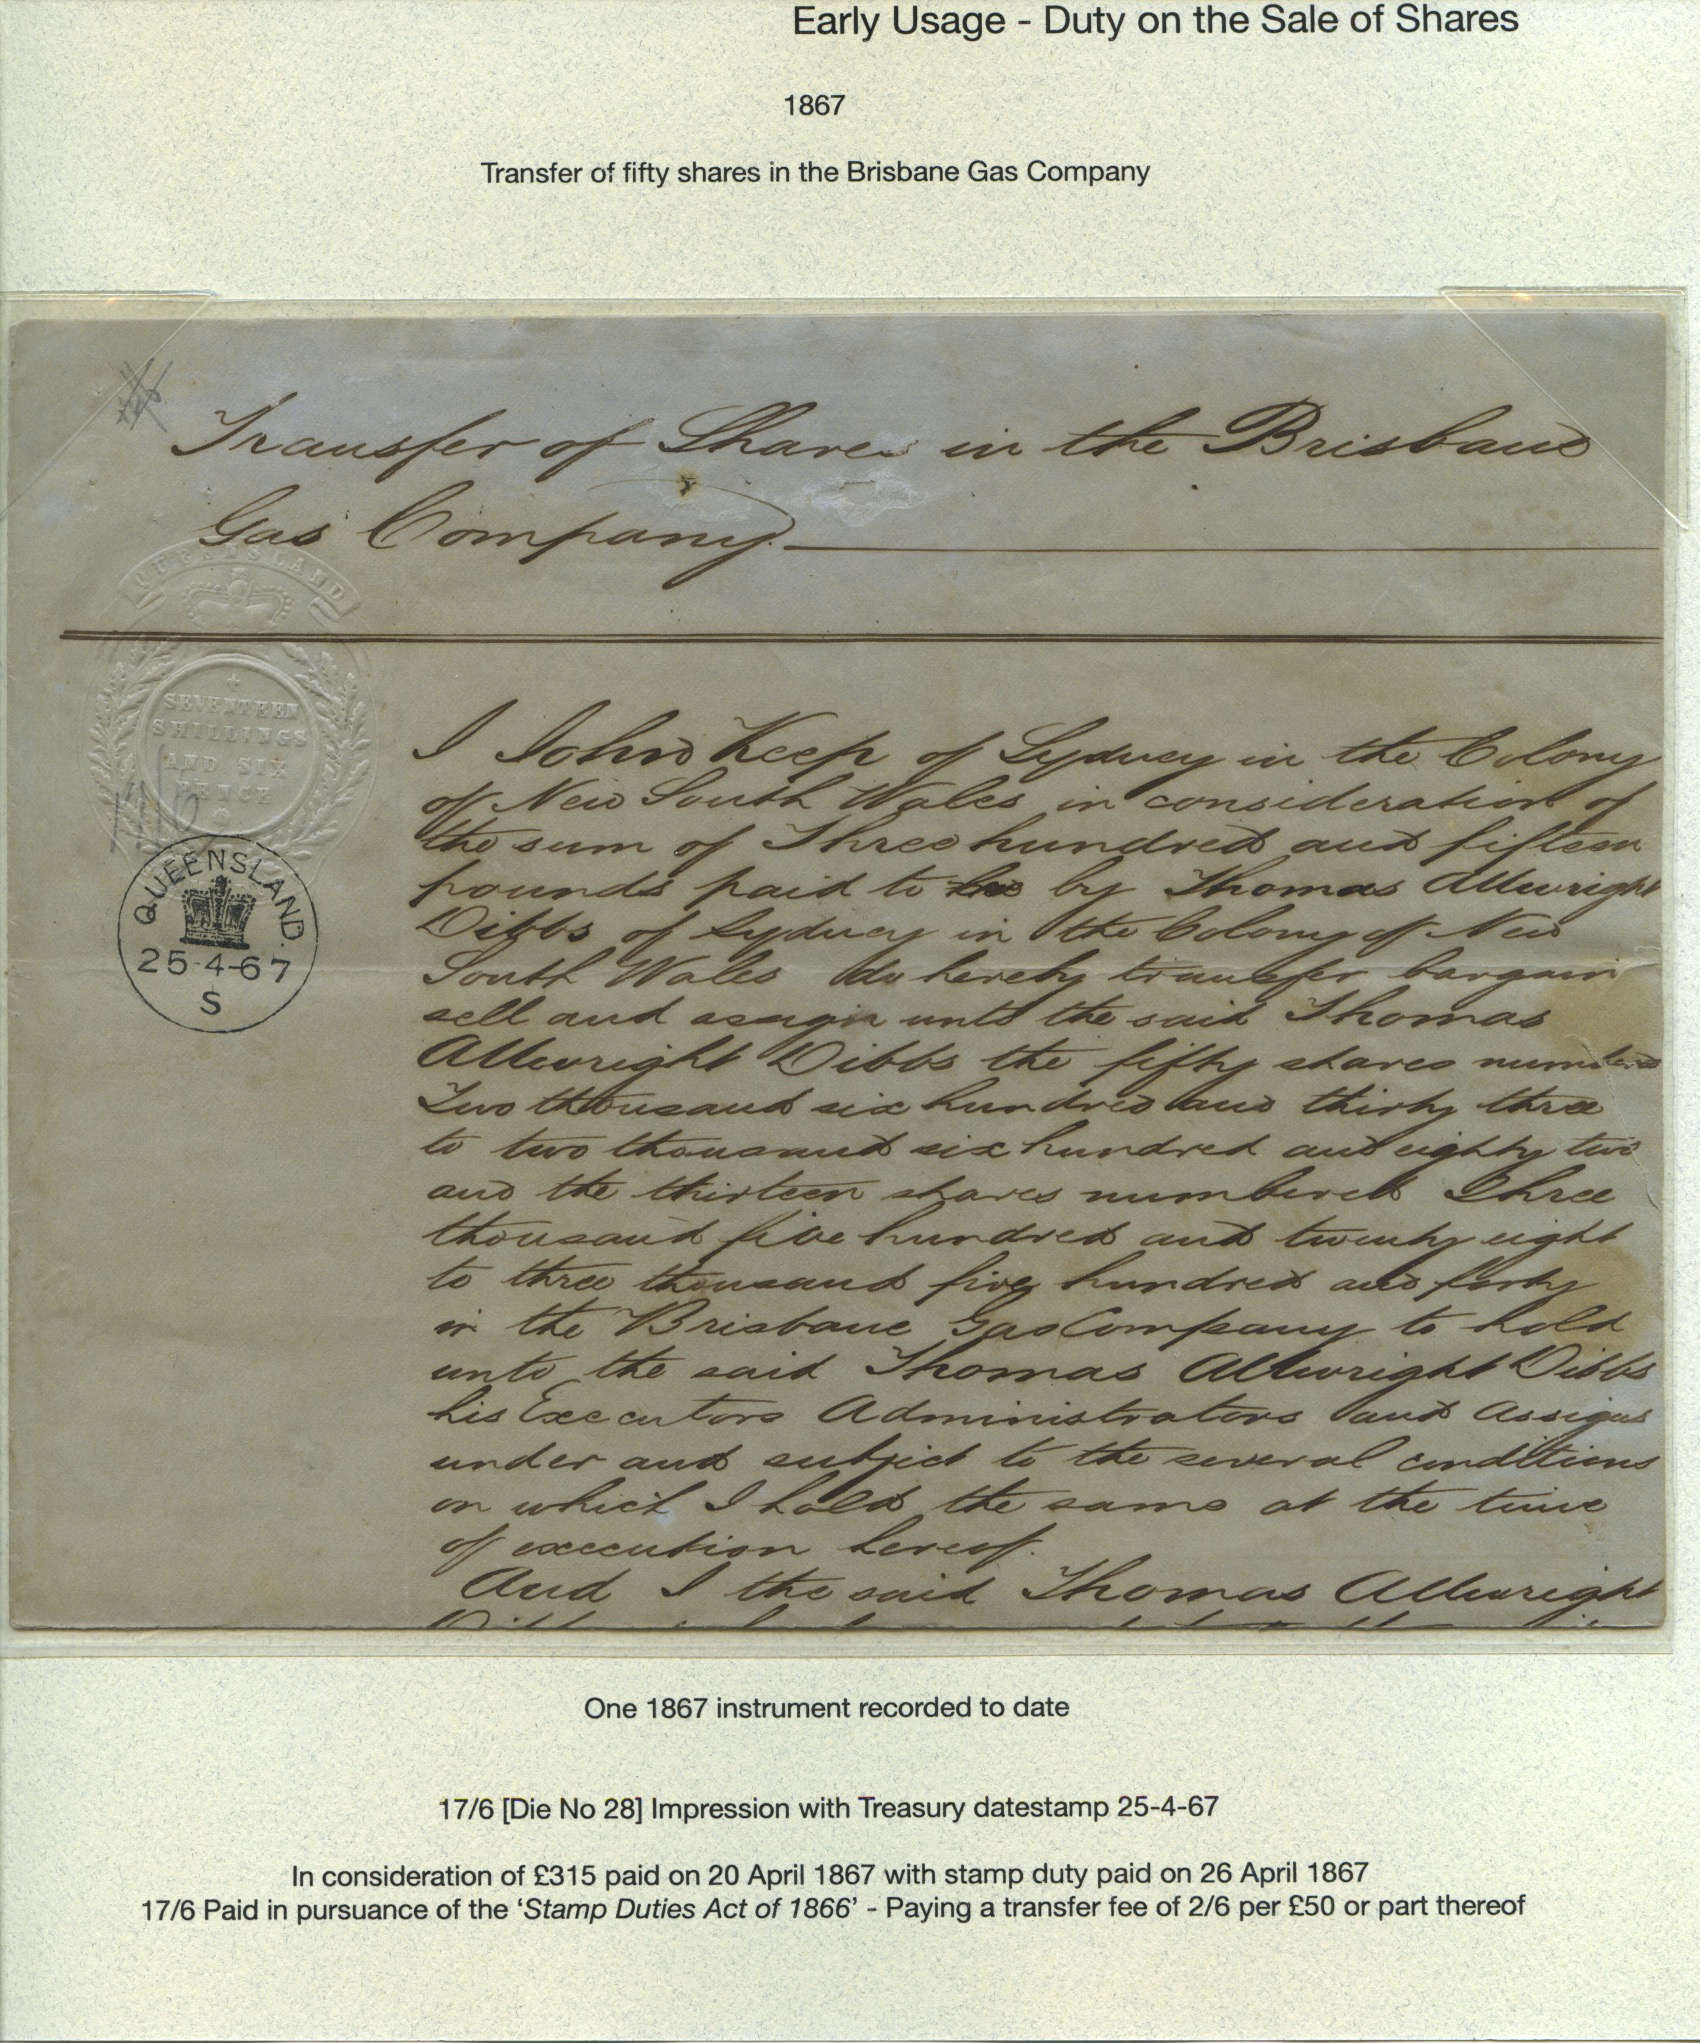 Early Usage - Duty on the Sale of Shares
1867
Transfer of fifty shares in the Brisbane Gas Company
Transfer of Shares in the Brisbane
Gas Company.
QUEENSLAND
SEVENTEEN
SHILLINGS
AND SIX
PENCE
17/6
QUEENSLAND
25-4-67
S
I John Keep of Sydney in the Colony
of New South Wales in consideration of
the sum of Three hundred and fifteen
pounds paid to by Thomas Allwright
Dibbs of Sydney in the Colony of New
South Wales do hereby transfer bargain
sell and assign unto the said Thomas
Allwright Dibbs the fifty shares numbered
Two thousand six hundred and thirty three
to two thousand six hundred and eighty two
and the thirteen shares numbered Three
thousand five hundred and twenty eight
to three thousand five hundred and forty
in the Brisbane Gas Company to hold
unto the said Thomas Allwright Dibbs
his Executors Administrators and Assigns
under and subject to the several conditions
on which I hold the same at the time
of execution hereof.
And I the said Thomas Allwright
One 1867 instrument recorded to date
17/6 [Die No 28] Impression with Treasury datestamp 25-4-67
In consideration of £315 paid on 20 April 1867 with stamp duty paid on 26 April 1867
17/6 Paid in pursuance of the ‘Stamp Duties Act of 1866’ - Paying a transfer fee of 2/6 per £50 or part thereof